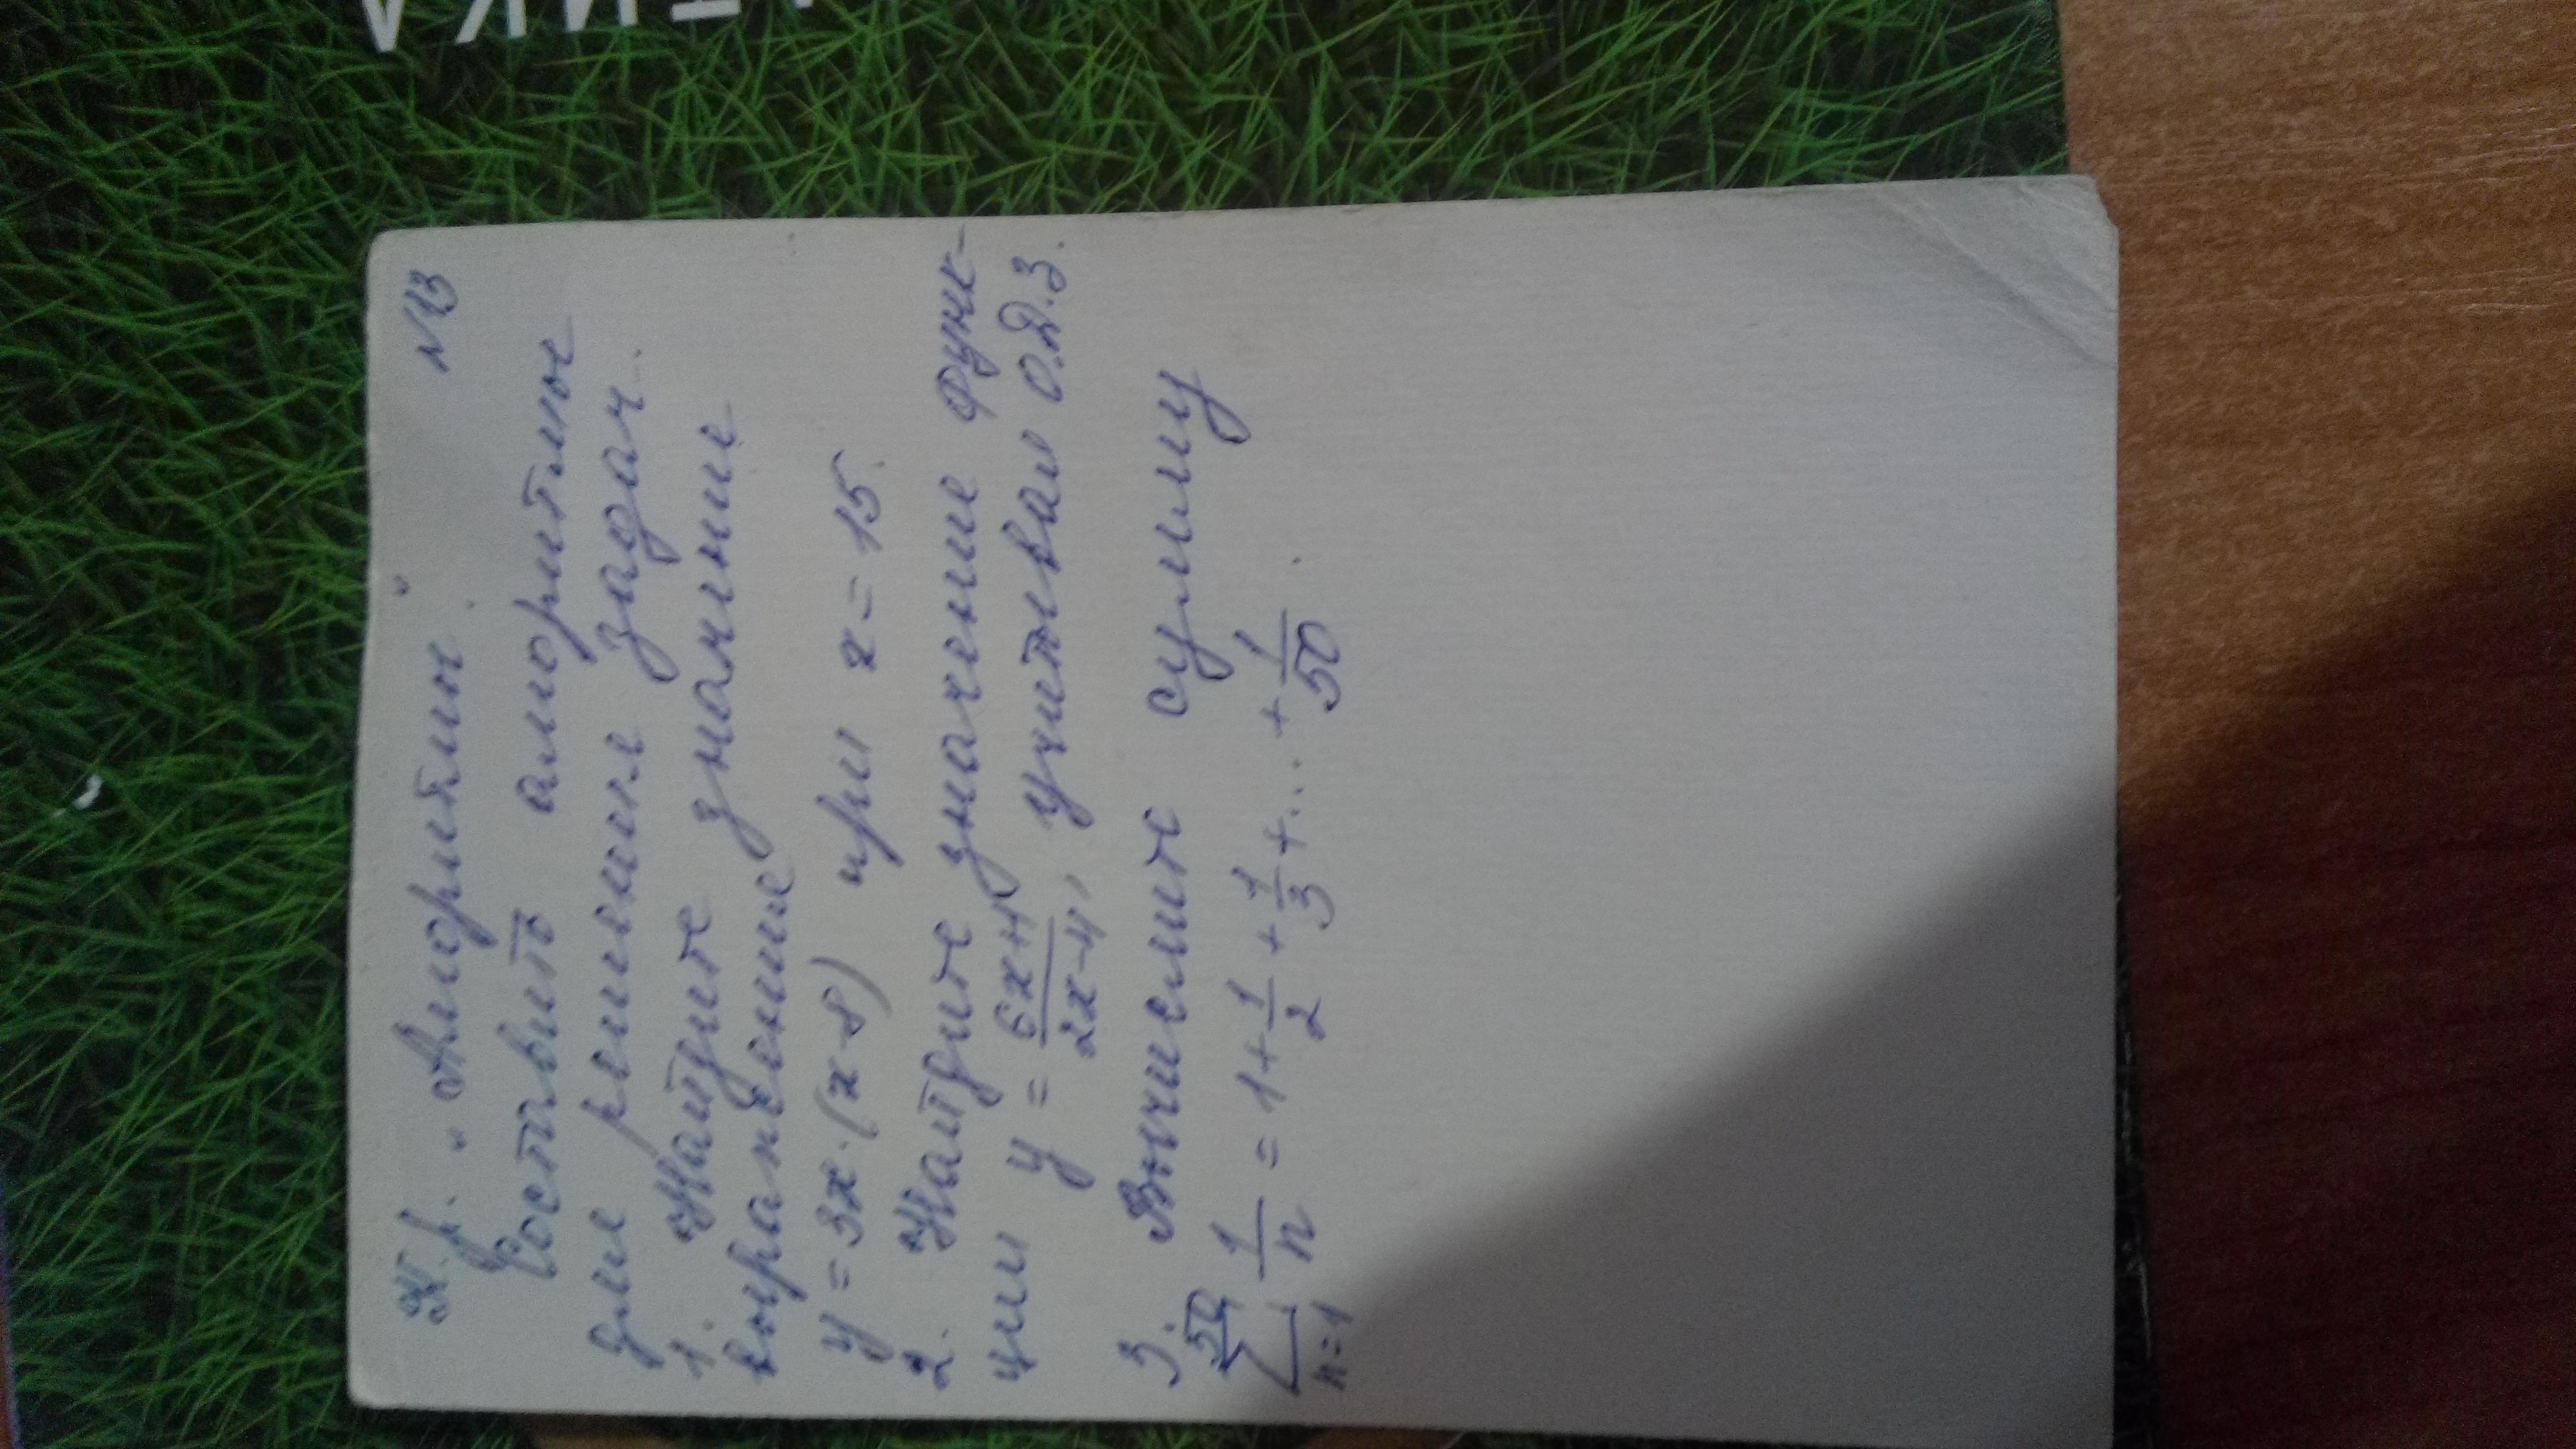 К.р. "Алгоритмы." №13
Составить алгоритмы
для решения задач.
1. Найдите значение
выражение
y = 3x·(x-8) при x = 15.
2. Найдите значение функ-
ции y = \frac{6x+4}{2x-4}, учитывая О.Д.З.
3. Вычислите сумму
\sum_{n=1}^{50} \frac{1}{n} = 1 + \frac{1}{2} + \frac{1}{3} + ... + \frac{1}{50}.